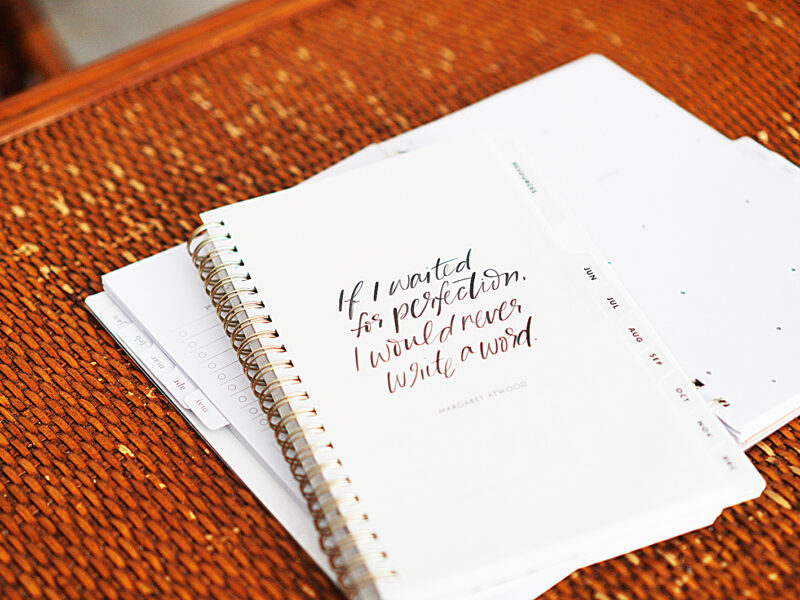 If I waited
for perfection,
I would never
write a word.
MARGARET ATWOOD
JUN
JUL
AUG
SEP
OCT
NOV
DEC
jan
feb
mar
apr
may